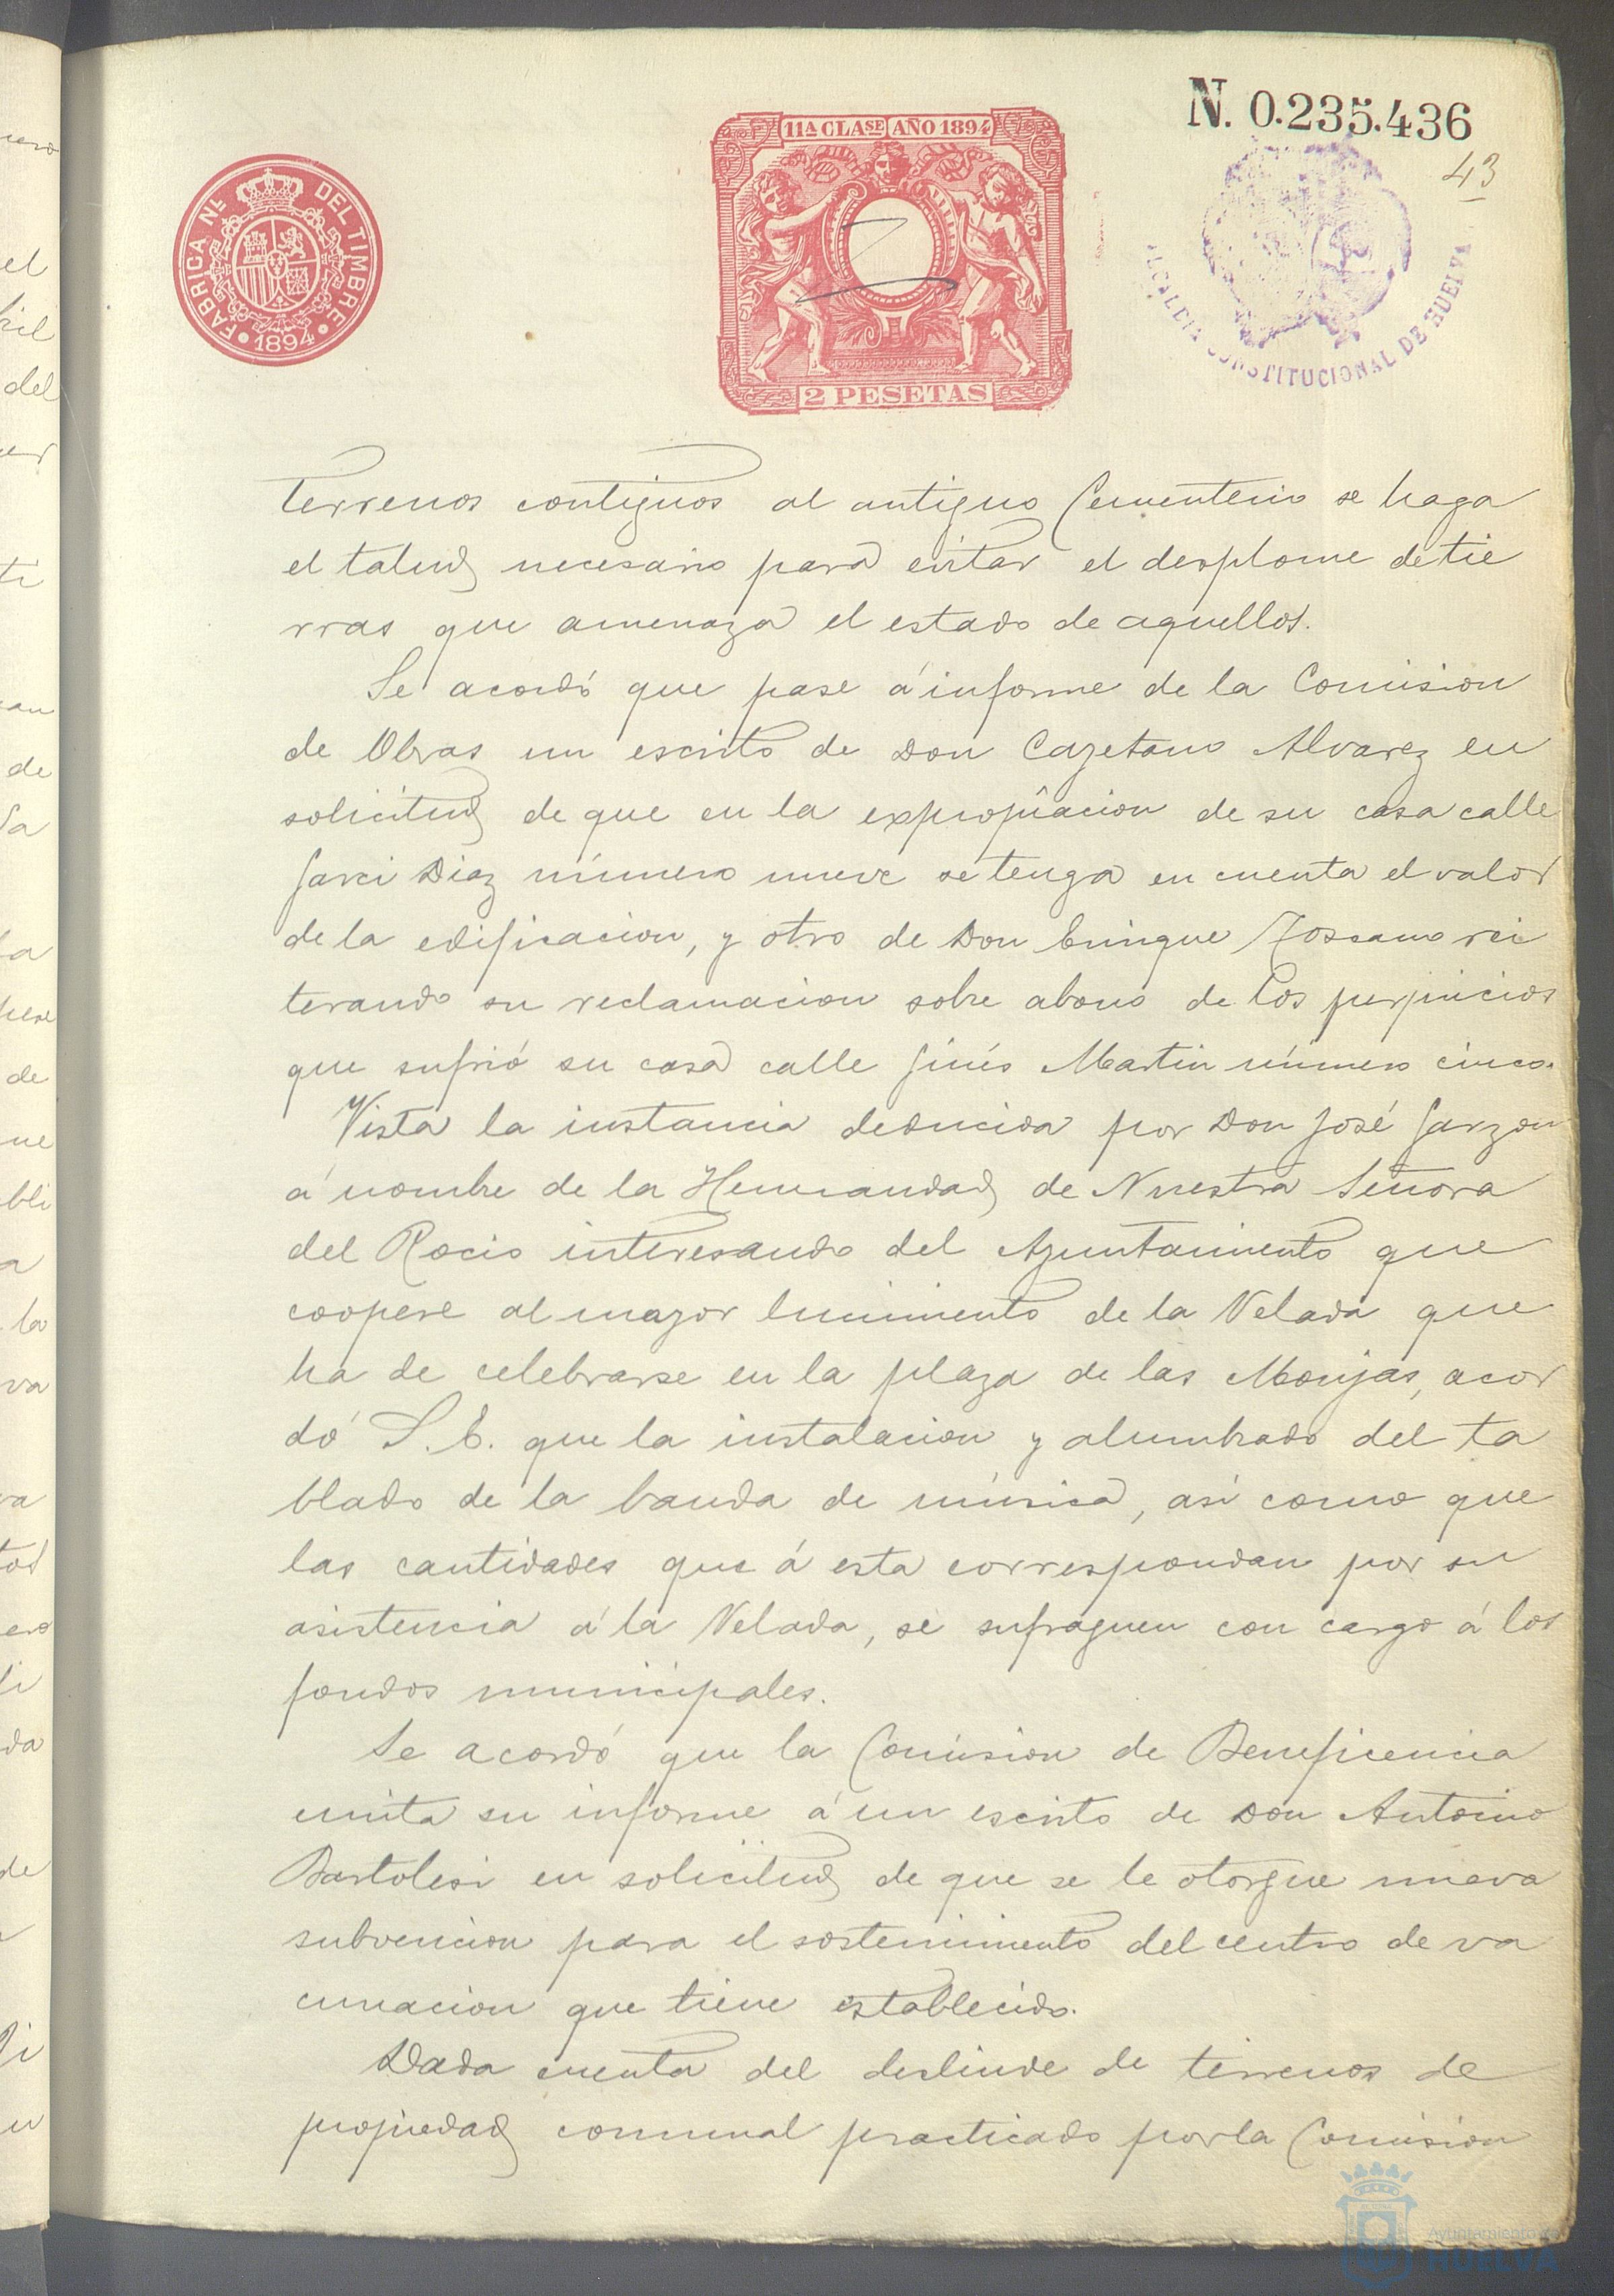 N. 0.235.436
43
11A CLASE AÑO 1894
2 PESETAS
FABRICA NL DEL TIMBRE
1894
ALCALDIA CONSTITUCIONAL DE HUELVA
terrenos contiguos al antiguo Cementerio se haga
el talud necesario para evitar el desplome de tie
rras que amenaza el estado de aquellos.
Se acordó que pase á informe de la Comision
de Obras un escrito de Don Cayetano Alvarez en
solicitud de que en la expropiacion de su casa calle
Garci Diaz número nueve se tenga en cuenta el valor
de la edificacion, y otro de Don Enrique Toscano rei
terando su reclamacion sobre abono de los perjuicios
que sufrió su casa calle Ginés Martin número cinco.
Vista la instancia deducida por Don José Garzon
á nombre de la Hermandad de Nuestra Señora
del Rocio interesando del Ayuntamiento que
coopere al mayor lucimiento de la Velada que
ha de celebrarse en la plaza de las Monjas, acor
dó S. E. que la instalacion y alumbrado del ta
blado de la banda de música, asi como que
las cantidades que á esta correspondan por su
asistencia á la Velada, se sufraguen con cargo á los
fondos municipales.
Se acordó que la Comision de Beneficencia
emita su informe á un escrito de Don Antonio
Bartolesi en solicitud de que se le otorgue nueva
subvencion para el sostenimiento del centro de va
cunacion que tiene establecido.
Dada cuenta del deslinde de terrenos de
propiedad comunal practicado por la Comision
Ayuntamiento de
HUELVA